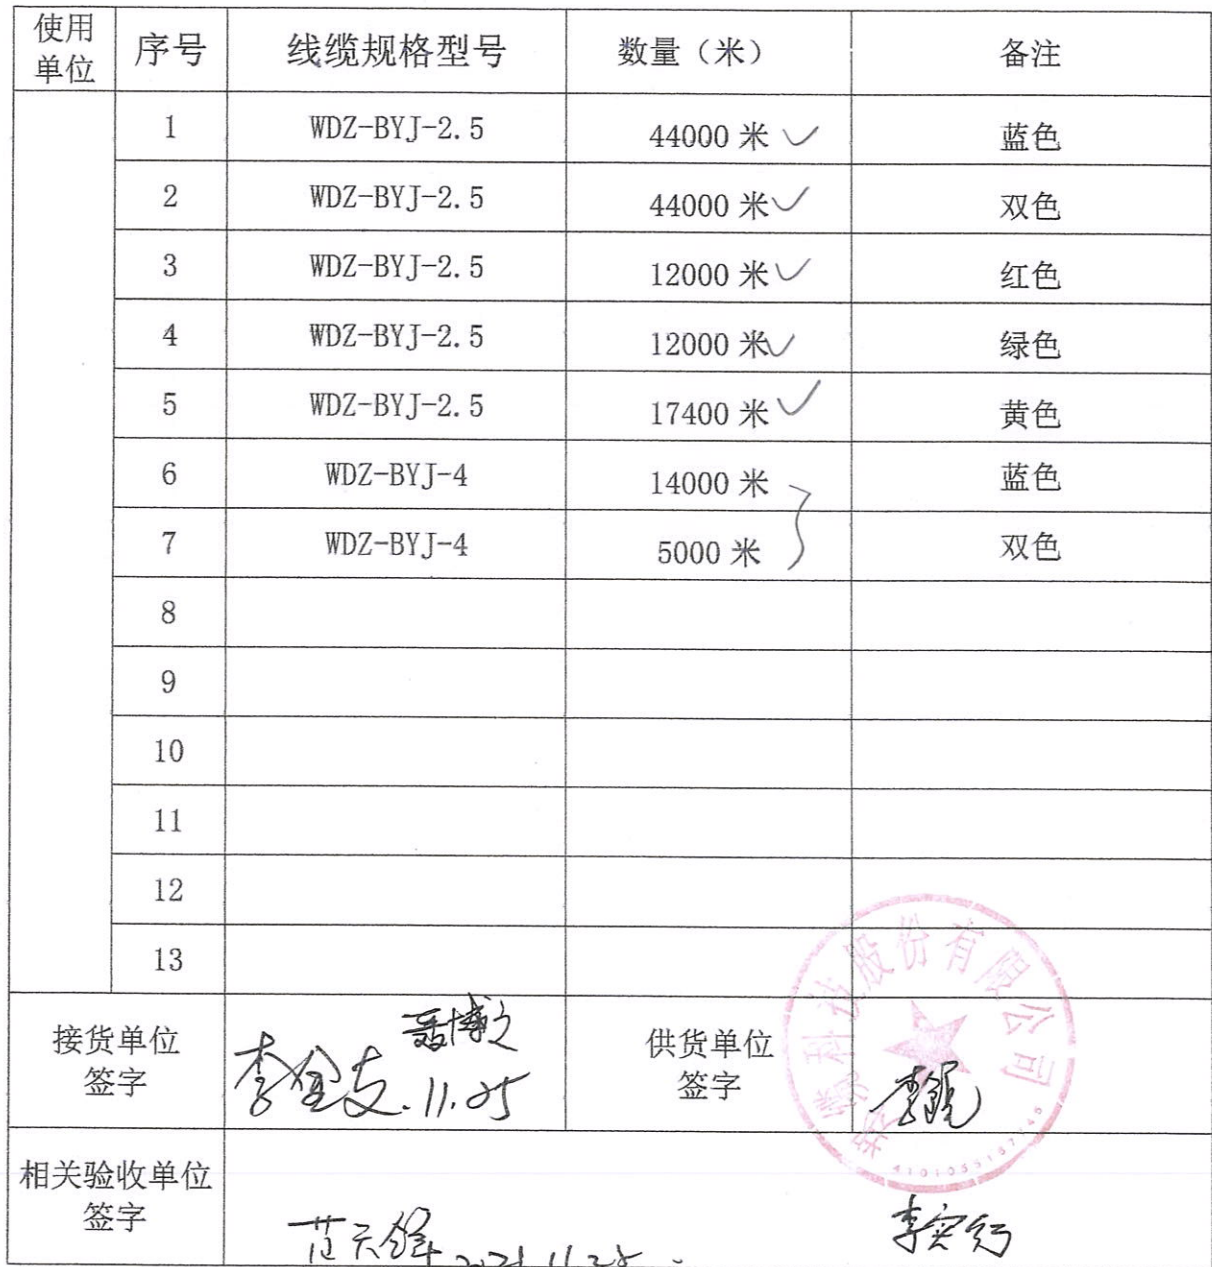 使用单位 序号 线缆规格型号 数量（米） 备注
1 WDZ-BYJ-2.5 44000 米 ✓ 蓝色
2 WDZ-BYJ-2.5 44000 米 ✓ 双色
3 WDZ-BYJ-2.5 12000 米 ✓ 红色
4 WDZ-BYJ-2.5 12000 米 ✓ 绿色
5 WDZ-BYJ-2.5 17400 米 ✓ 黄色
6 WDZ-BYJ-4 14000 米 蓝色
7 WDZ-BYJ-4 5000 米 双色
8
9
10
11
12
13
接货单位
签字
11.25
供货单位
签字
科技股份有限公司
相关验收单位
签字